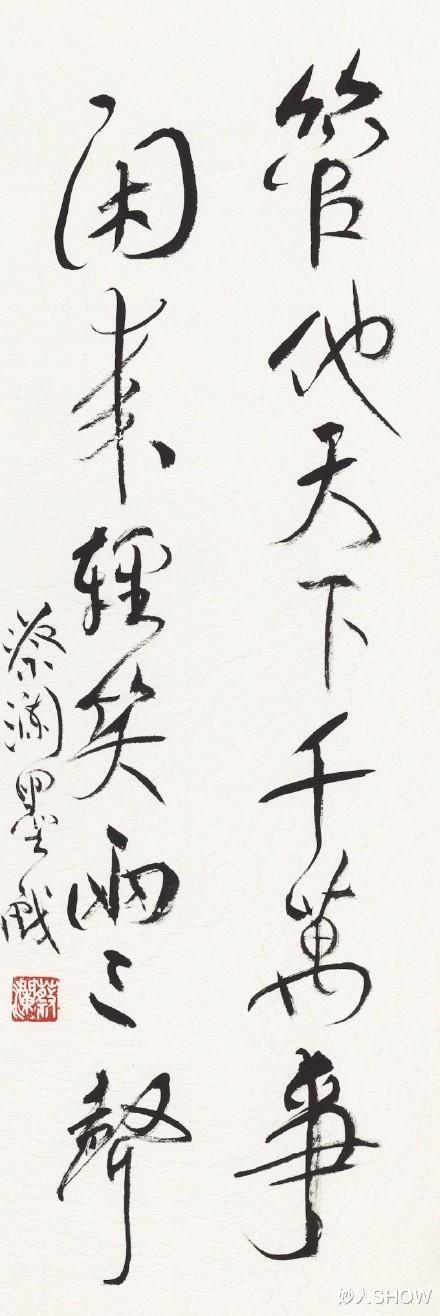 管他天下千萬事
闲来輕笑兩三聲
蔡澜墨戲
蔡瀾
妙人SHOW